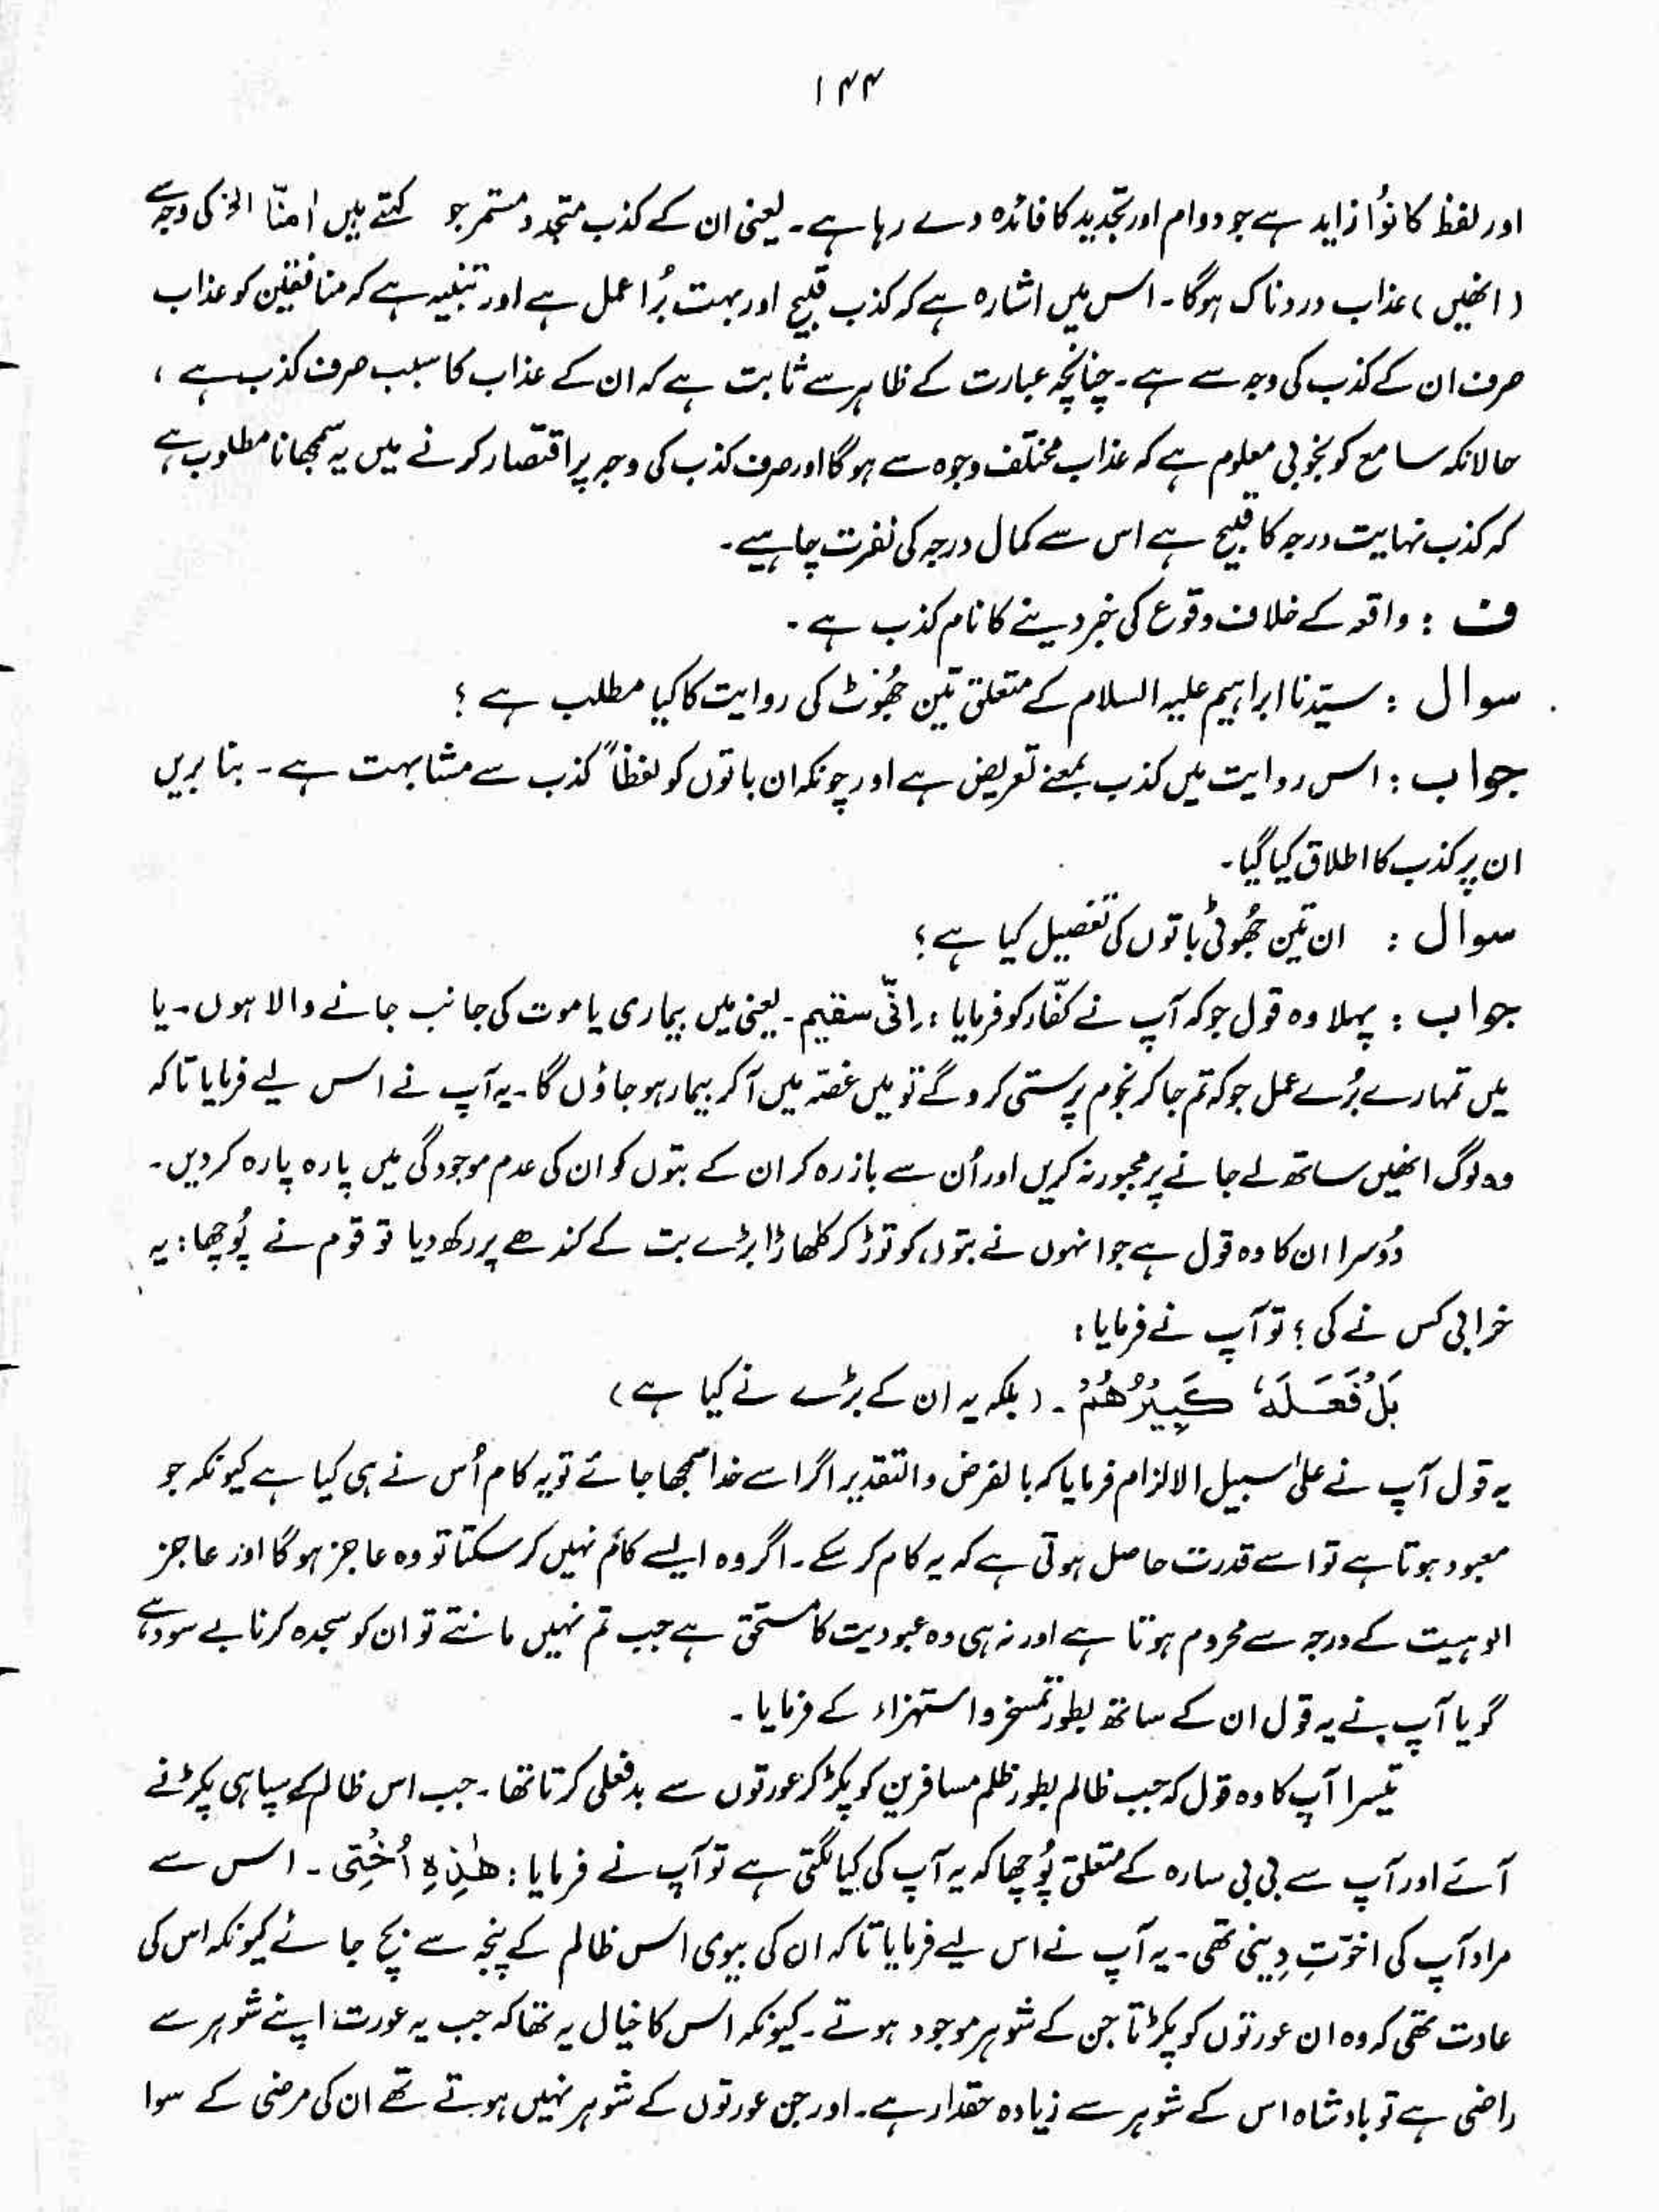 ۱۴۴
اور لفظ کانوُا زاید ہے جو دوام اور تجدید کا فائدہ دے رہا ہے۔ یعنی ان کے کذب متجدد مستمر جو کہتے ہیں اٰمنّا الخ کی وجہ سے
(انھیں) عذاب دردناک ہوگا۔ اس میں اشارہ ہے کہ کذب قبیح اور بہت بُرا عمل ہے اور تنبیہ ہے کہ منافقین کو عذاب
صرف ان کے کذب کی وجہ سے ہے۔ چنانچہ عبارت کے ظاہر سے ثابت ہے کہ ان کے عذاب کا سبب صرف کذب ہے ،
حالانکہ سامع کو بخوبی معلوم ہے کہ عذاب مختلف وجوہ سے ہوگا اور صرف کذب کی وجہ پر اقتصار کرنے میں یہ سمجھانا مطلوب ہے
کہ کذب نہایت درجہ کا قبیح ہے اس سے کمال درجہ کی نفرت چاہیے۔
ف : واقعہ کے خلاف وقوع کی خبر دینے کا نام کذب ہے ۔
سوال : سیّدنا ابراہیم علیہ السلام کے متعلق تین جھُوٹ کی روایت کا کیا مطلب ہے ؟
جواب : اس روایت میں کذب بمعنے تعریض ہے اور چونکہ ان باتوں کو لفظاً کذب سے مشابہت ہے ۔ بنا بریں
ان پر کذب کا اطلاق کیا گیا۔
سوال : ان تین جھُوٹی باتوں کی تفصیل کیا ہے ؟
جواب : پہلا وہ قول جو کہ آپ نے کفّار کو فرمایا : اِنّی سقیم۔ یعنی میں بیماری یا موت کی جانب جانے والا ہوں۔ یا
میں تمہارے بُرے عمل جو کہ تم جا کر نجوم پرستی کرو گے تو میں غصّہ میں آکر بیمار ہو جاؤں گا۔ یہ آپ نے اس لیے فرمایا تاکہ
وہ لوگ انھیں ساتھ لے جانے پر مجبور نہ کریں اور اُن سے باز رہ کر ان کے بتوں کو ان کی عدم موجودگی میں پارہ پارہ کردیں۔
دُوسرا ان کا وہ قول ہے جو انہوں نے بتوں کو توڑ کر کلھاڑا بڑے بت کے کندھے پر رکھ دیا تو قوم نے پُوچھا : یہ
خرابی کس نے کی ؟ تو آپ نے فرمایا :
بَلْ فَعَلَہٗ کَبِیْرُھُمْ ۔ (بلکہ یہ ان کے بڑے نے کیا ہے)
یہ قول آپ نے علیٰ سبیل الالزام فرمایا کہ بالفرض والتقدیر اگر اسے خدا سمجھا جائے تو یہ کام اُس نے ہی کیا ہے کیونکہ جو
معبود ہوتا ہے تو اسے قدرت حاصل ہوتی ہے کہ یہ کام کر سکے ۔ اگر وہ ایسے کام نہیں کر سکتا تو وہ عاجز ہوگا اور عاجز
الوہیت کے درجہ سے محروم ہوتا ہے اور نہ ہی وہ عبودیت کا مستحق ہے جب تم نہیں مانتے تو ان کو سجدہ کرنا بے سود ہے
گویا آپ نے یہ قول ان کے ساتھ بطور تمسخر و استہزاء کے فرمایا ۔
تیسرا آپ کا وہ قول کہ جب ظالم بطور ظلم مسافرین کو پکڑ کر عورتوں سے بدفعلی کرتا تھا۔ جب اس ظالم کے سپاہی پکڑنے
آئے اور آپ سے بی بی سارہ کے متعلق پُوچھا کہ یہ آپ کی کیا لگتی ہے تو آپ نے فرمایا : ھٰذِہٖ اُخْتِی ۔ اس سے
مراد آپ کی اخوّتِ دِینی تھی۔ یہ آپ نے اس لیے فرمایا تاکہ ان کی بیوی اس ظالم کے پنجہ سے بچ جائے کیونکہ اس کی
عادت تھی کہ وہ ان عورتوں کو پکڑتا جن کے شوہر موجود ہوتے ۔ کیونکہ اس کا خیال یہ تھا کہ جب یہ عورت اپنے شوہر سے
راضی ہے تو بادشاہ اس کے شوہر سے زیادہ حقدار ہے۔ اور جن عورتوں کے شوہر نہیں ہوتے تھے ان کی مرضی کے سوا